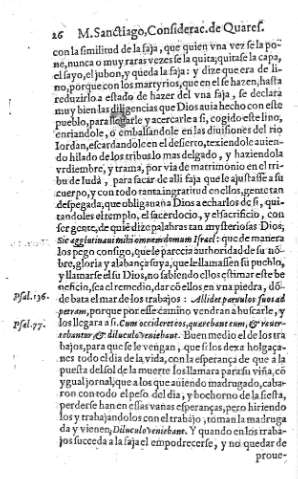 26 M. Sanctiago, Considerac. de Quares.
con la similitud de la faja, que quien vna vez se la pone,
nunca o muy raras vezes se la quita; quitase la capa,
el sayo, el jubon, y queda la faja: y dize que era de lino,
porque con los martyrios, que en el se hazen, hasta
reduzirlo a estado de hazer del vna faja, se declara
muy bien las diligencias que Dios auia hecho con este
pueblo, para llegarle y acercarle a si, cogido este lino,
enriandole, o embalsandole en las diuisiones del rio
Iordan, escardandole en el desierto, texiendole auiendo
hilado de los tribus lo mas delgado, y haziendola
vrdiembre, y trama, por via de matrimonio en el tribu
de Iudà, para sacar de alli faja que le ajustasse a su
cuerpo, y con todo tanta ingratitud en ellos, gente tan
despegada, que obligauan a Dios a echarlos de si, quitandoles
el templo, el sacerdocio, y el sacrificio, con
ser gente, de quiē dize palabras tan mysteriosas Dios;
Sic agglutinaui mihi omnem domum Israel: que de manera
los pego consigo, que le parecia authoridad de su nōbre,
gloria y alabança suya, que le llamassen su pueblo,
y llamarse el su Dios, no sabiendo ellos estimar este beneficio,
sea el remedio, dar cō ellos en vna piedra, dōde
bata el mar de los trabajos: Allidet paruulos suos ad
petram, porque por esse camino vendran a buscarle, y
los llegara a si. Cum occideret eos, quærebant eum, & reuertebantur,
& diluculo veniebant. Buen medio el de los trabajos,
para que se vengan, que si los dexa holgaçanes
todo el dia de la vida, con la esperança de que a la
puesta del sol de la muerte los llamara para su viña, cō
ygual jornal, que a los que auiendo madrugado, cabaron
con todo el peso del dia, y bochorno de la siesta,
perderse han en essas vanas esperanças, pero hiriendo
los y trabajandolos con el trabajo, toman la madrugada
y vienen, Diluculo veniebant. Y quando en los trabajos
suceda a la faja el empodrecerse, y no quedar de
proue-
Psal. 136.
Psal. 77.